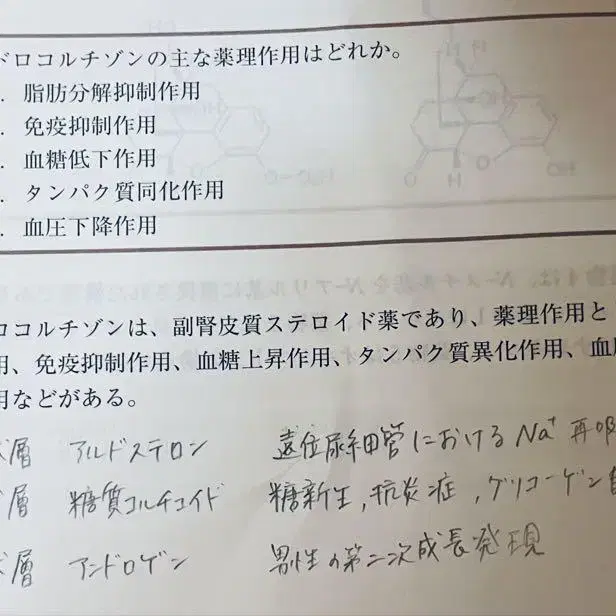 ドロコルチゾンの主な薬理作用はどれか。
. 脂肪分解抑制作用
. 免疫抑制作用
. 血糖低下作用
. タンパク質同化作用
. 血圧下降作用
コルチゾンは、副腎皮質ステロイド薬であり、薬理作用と
用、免疫抑制作用、血糖上昇作用、タンパク質異化作用、血
用などがある。
層 アルドステロン 遠位尿細管におけるNa⁺再吸
層 糖質コルチコイド 糖新生,抗炎症,グリコーゲン
層 アンドロゲン 男性の第二次成長発現